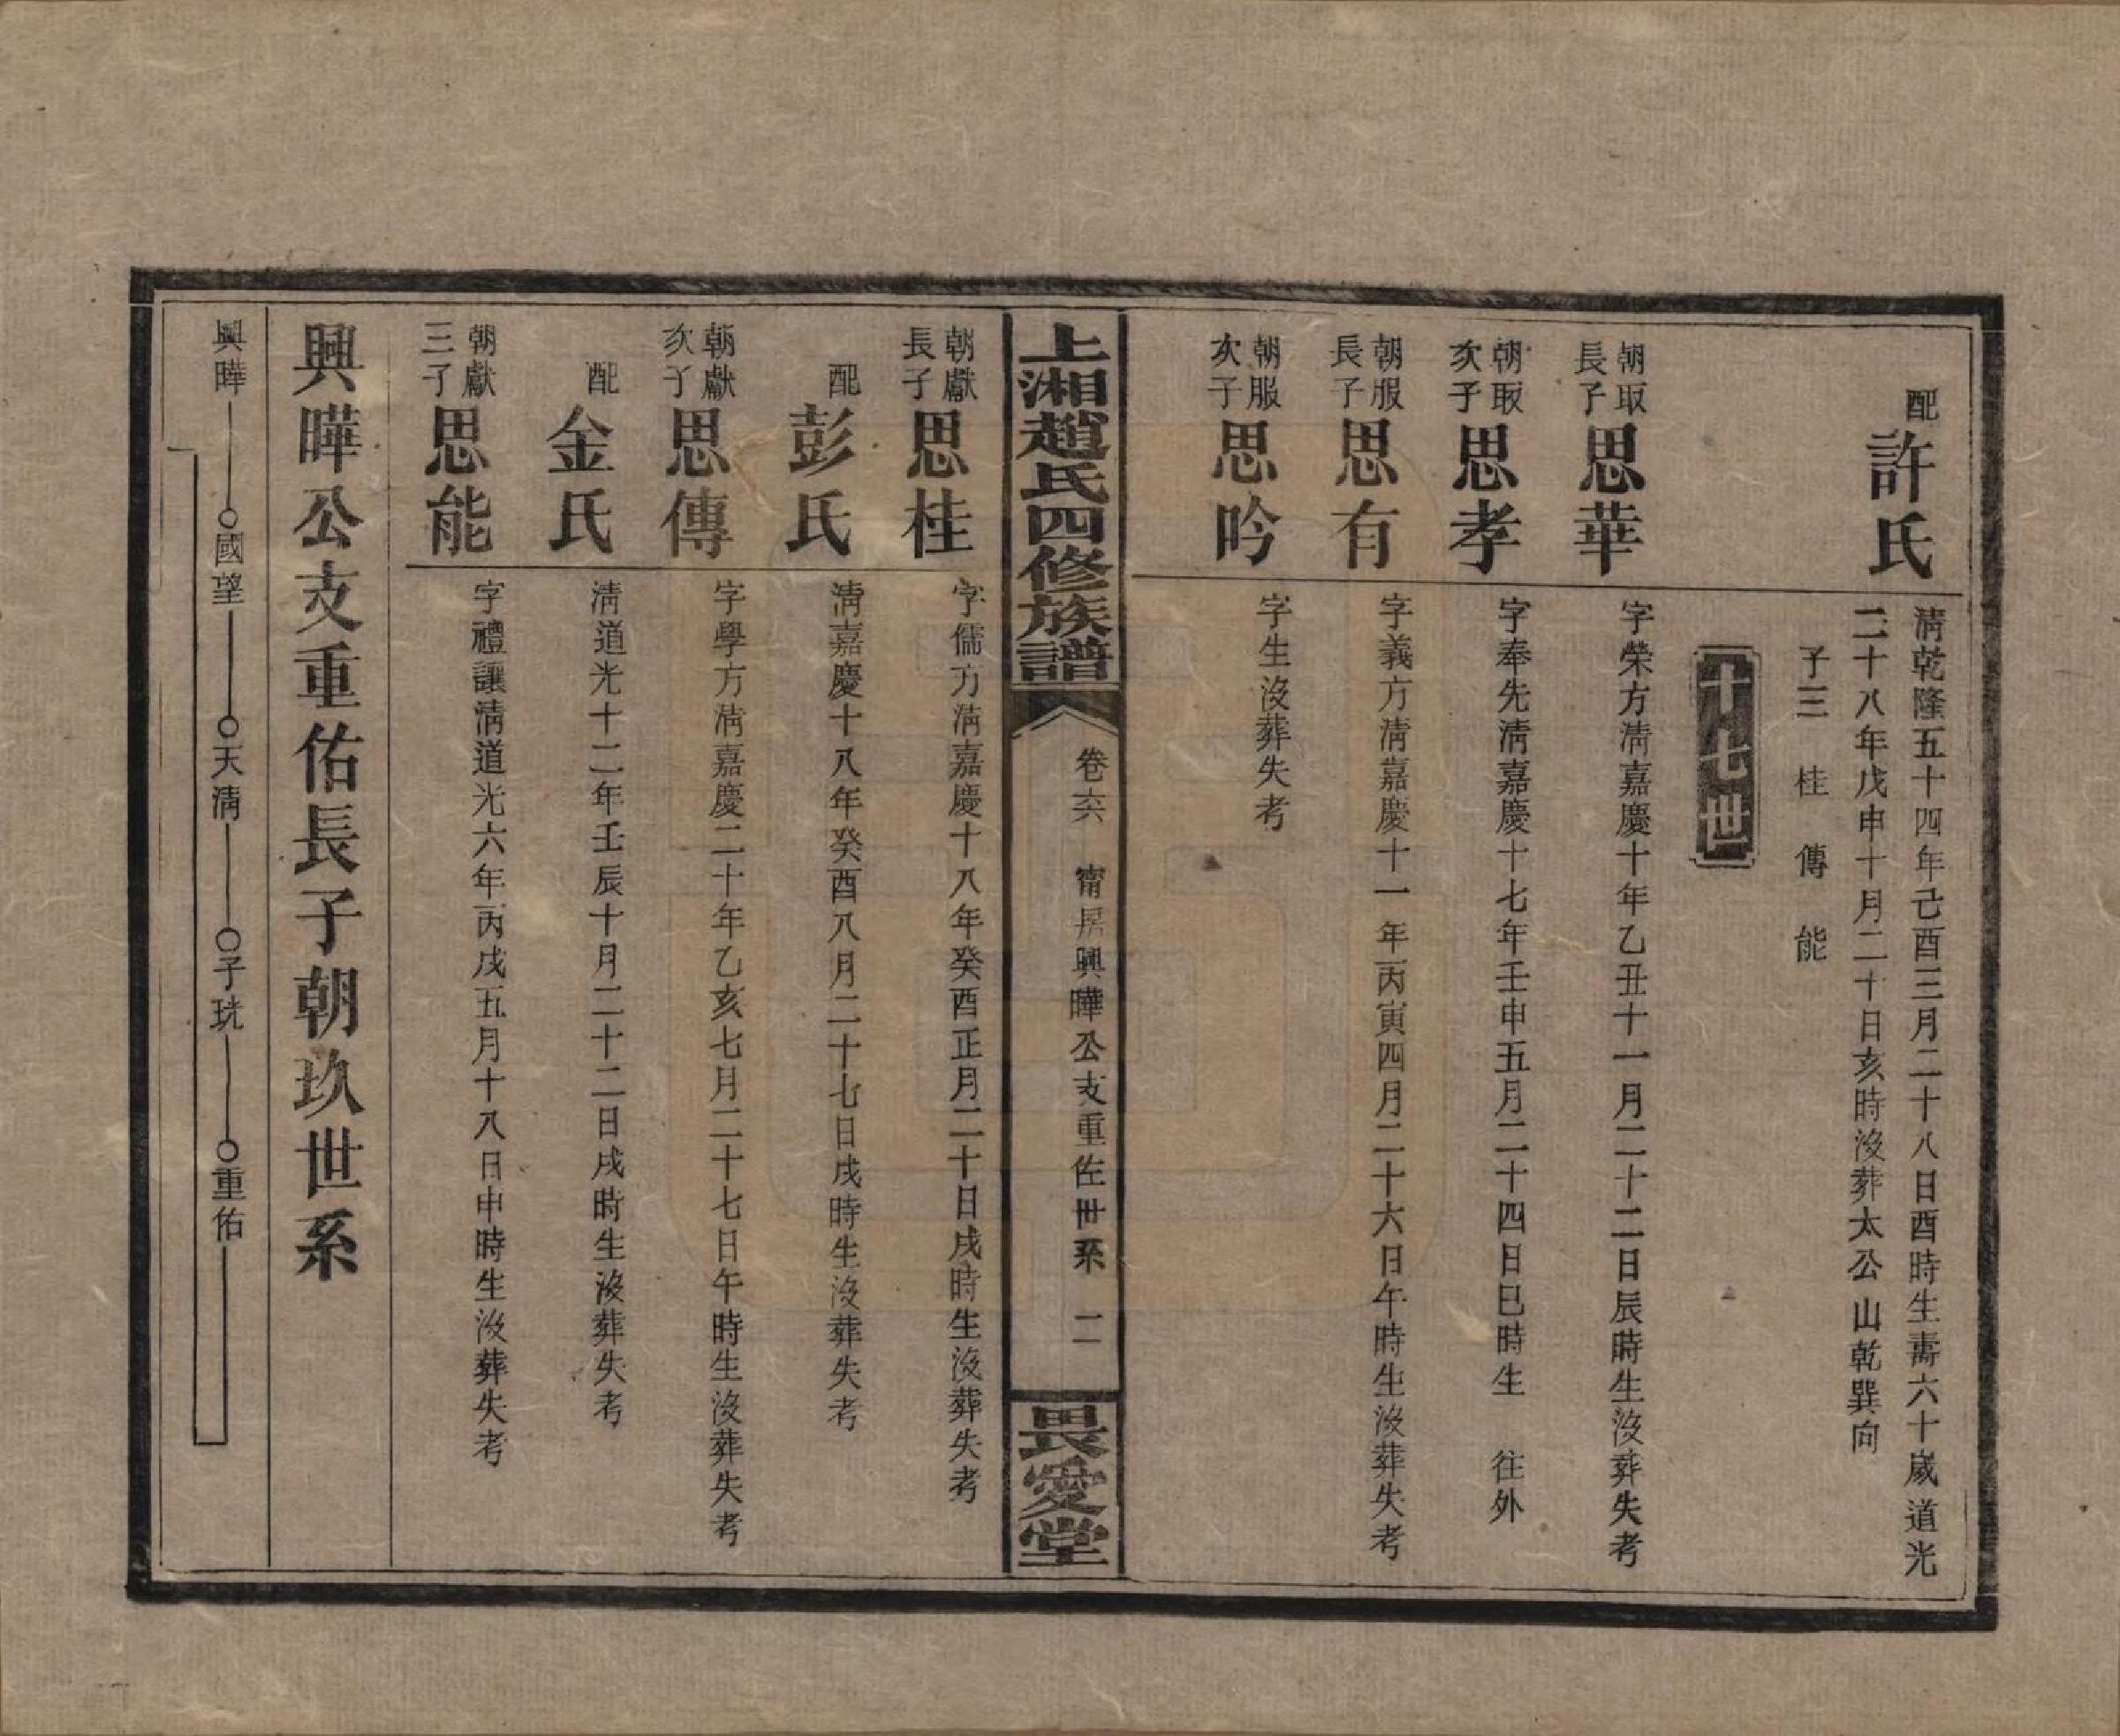 配許氏
清乾隆五十四年己酉三月二十八日酉時生壽六十歲道光
二十八年戊申十月二十日亥時沒葬太公山乾巽向
子三 桂 傳 能
十七世
朝取長子思華
字榮方清嘉慶十年乙丑十一月二十二日辰時生沒葬失考
朝取次子思孝
字奉先清嘉慶十七年壬申五月二十四日巳時生 往外
朝服長子思有
字義方清嘉慶十一年丙寅四月二十六日午時生沒葬失考
朝服次子思吟
字生沒葬失考
上湘趙氏四修族譜
卷六 甯房興曄公支重佐世系 二
畏愛堂
朝獻長子思桂
字儒方清嘉慶十八年癸酉正月二十日戌時生沒葬失考
配彭氏
清嘉慶十八年癸酉八月二十七日戌時生沒葬失考
朝獻次子思傳
字學方清嘉慶二十年乙亥七月二十七日午時生沒葬失考
配金氏
清道光十二年壬辰十月二十二日戌時生沒葬失考
朝獻三子思能
字禮讓清道光六年丙戌五月十八日申時生沒葬失考
興曄公支重佑長子朝玖世系
興曄 國望 天清 子珖 重佑